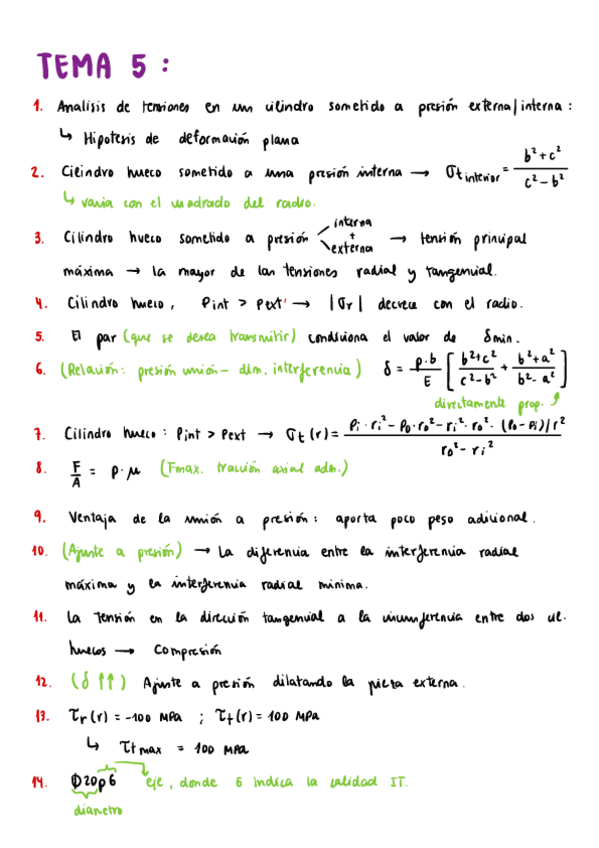 TEMA 5 :
1. Analisis de tensiones en un cilindro sometido a presión externa/interna :
↳ Hipotesis de deformación plana
2. Cilindro hueco sometido a una presión interna → σt interior = (b² + c²) / (c² - b²)
↳ varia con el cuadrado del radio.
3. Cilindro hueco sometido a presión < interna + externa → tensión principal
máxima → la mayor de las tensiones radial y tangencial.
4. Cilindro hueco, Pint > Pext → |σr| decrece con el radio.
5. El par (que se desea transmitir) condiciona el valor de δmin.
6. (Relación: presión unión - dim. interferencia) δ = p·b / E [ (b²+c²) / (c²-b²) + (b²+a²) / (b²-a²) ]
directamente prop.
7. Cilindro hueco : Pint > Pext → σt (r) = (Pi · ri² - Po · ro² - ri² · ro² · (Po - Pi)/r²) / (ro² - ri²)
8. F/A = p · μ (Fmax. tracción axial adm.)
9. Ventaja de la unión a presión : aporta poco peso adicional.
10. (Ajuste a presión) → La diferencia entre la interferencia radial
máxima y la interferencia radial minima.
11. La tensión en la dirección tangencial a la circunferencia entre dos cil.
huecos → Compresión
12. (δ ↑↑) Ajuste a presión dilatando la pieza externa.
13. τr (r) = -100 MPa ; τt (r) = 100 MPa
↳ τt max = 100 MPa
14. Φ20p6 eje, donde 6 indica la calidad IT.
diametro